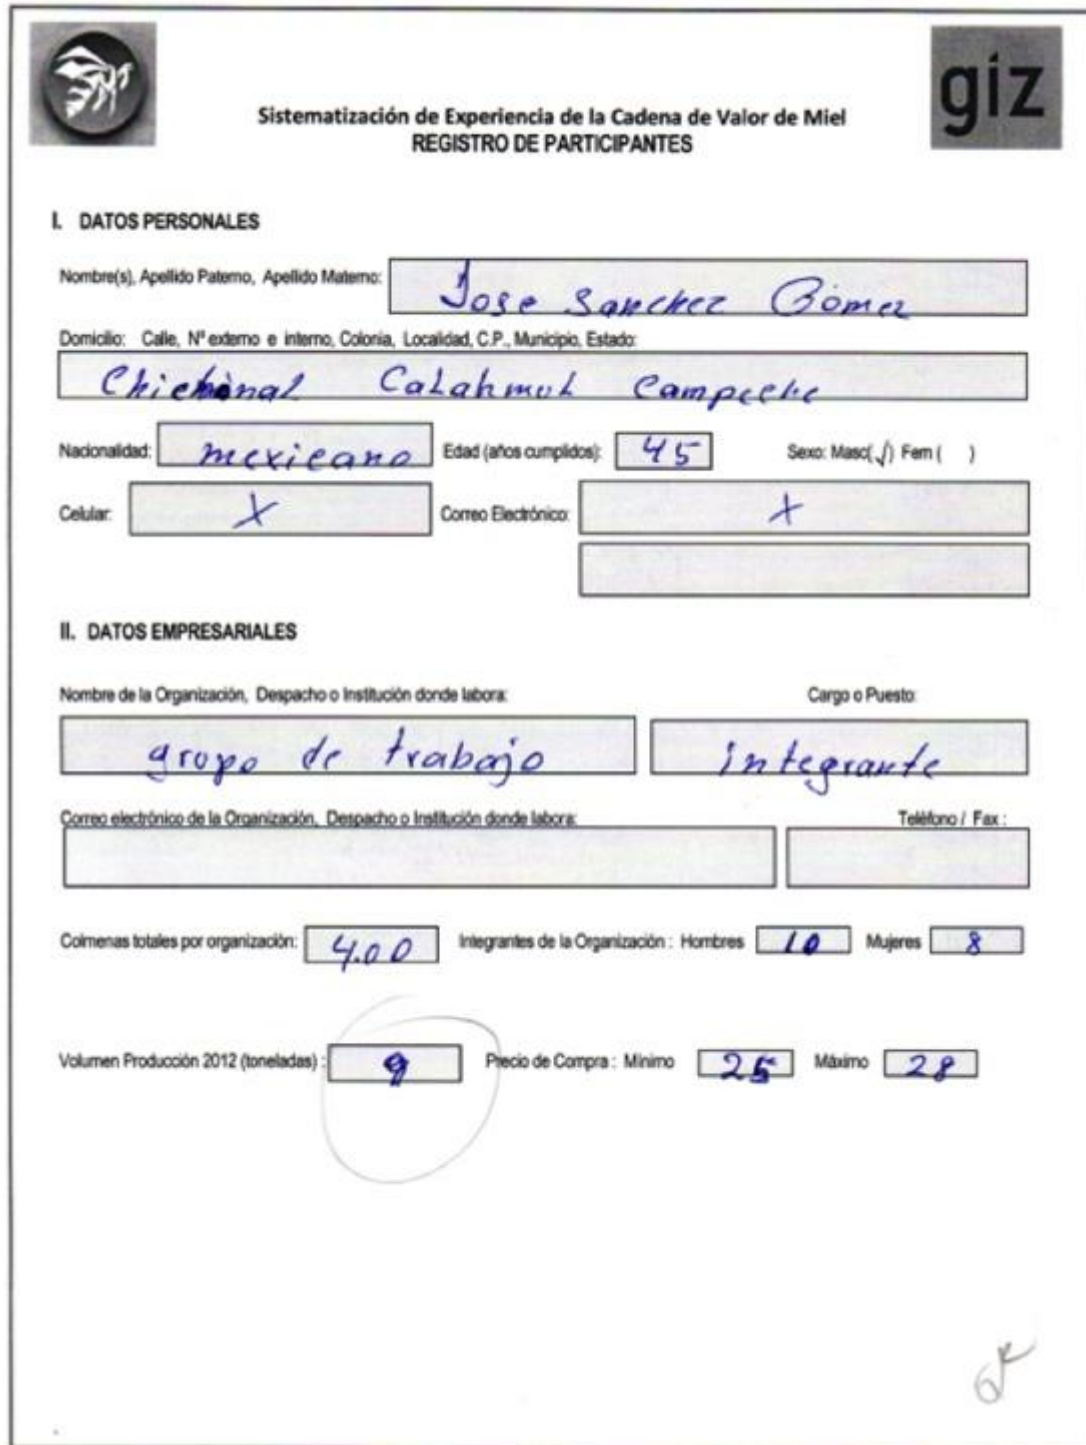 giz
Sistematización de Experiencia de la Cadena de Valor de Miel
REGISTRO DE PARTICIPANTES
I. DATOS PERSONALES
Nombre(s), Apellido Paterno, Apellido Materno: Jose Sanchez Gómez
Domicilio: Calle, Nº externo e interno, Colonia, Localidad, C.P., Municipio, Estado:
Chichonal Calahmul Campeche
Nacionalidad: mexicano Edad (años cumplidos): 45 Sexo: Masc(√) Fem ( )
Celular: X Correo Electrónico: X
II. DATOS EMPRESARIALES
Nombre de la Organización, Despacho o Institución donde labora: Cargo o Puesto:
grupo de trabajo integrante
Correo electrónico de la Organización, Despacho o Institución donde labora: Teléfono / Fax :
Colmenas totales por organización: 4.00 Integrantes de la Organización : Hombres 10 Mujeres 8
Volumen Producción 2012 (toneladas) : 9 Precio de Compra : Mínimo 25 Máximo 28